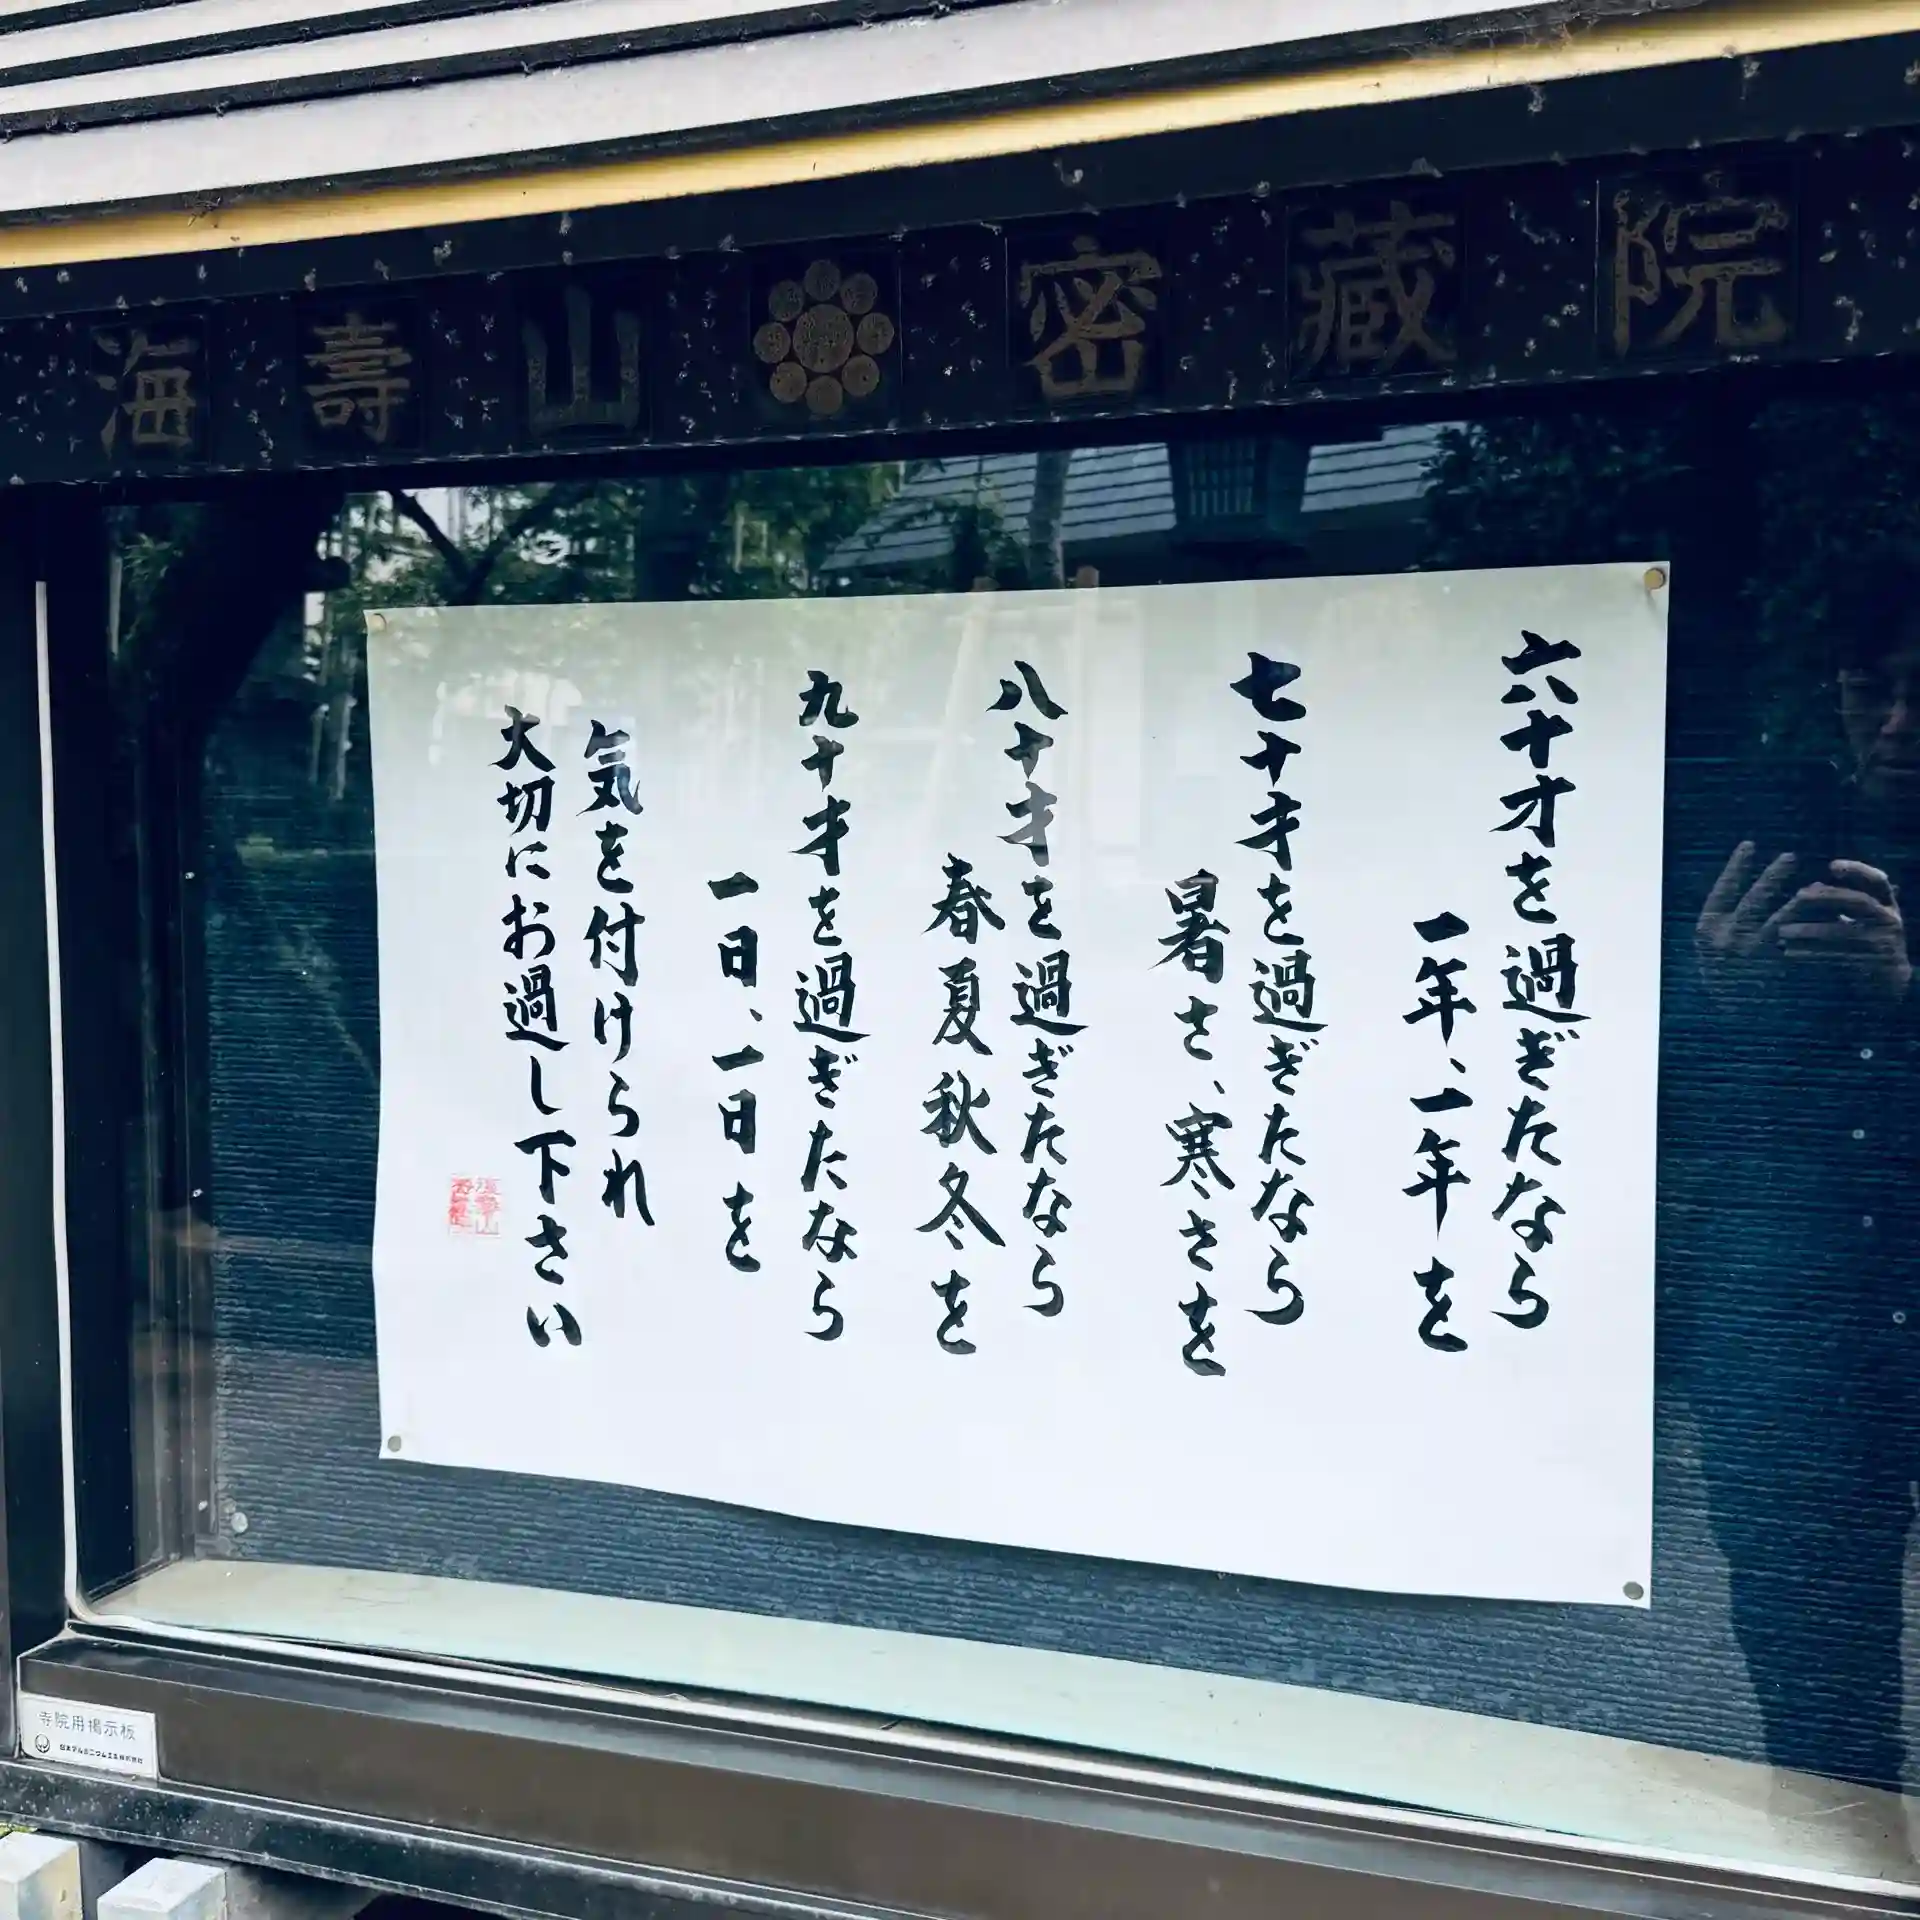 海壽山 密蔵院
六十才を過ぎたなら
一年、一年を
七十才を過ぎたなら
暑さ、寒さを
八十才を過ぎたなら
春夏秋冬を
九十才を過ぎたなら
一日、一日を
気を付けられ
大切にお過し下さい
寺院用掲示板
日本アルミニウム工業株式会社